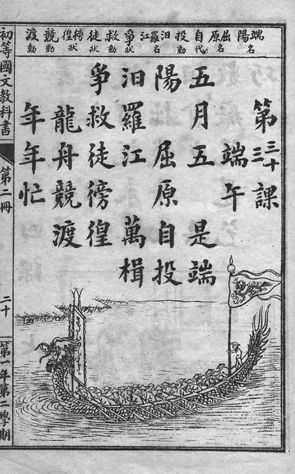 端陽名
屈原名
自代
投動
汨羅江名
爭狀
救動
徒狀
徬徨狀
競動
渡動
第三十課
端午
五月五 是端
陽 屈原自投
汨羅江 萬楫
爭救徒徬徨
龍舟競渡
年年忙
初等國文教科書 第二冊 二十 第一年第二學期